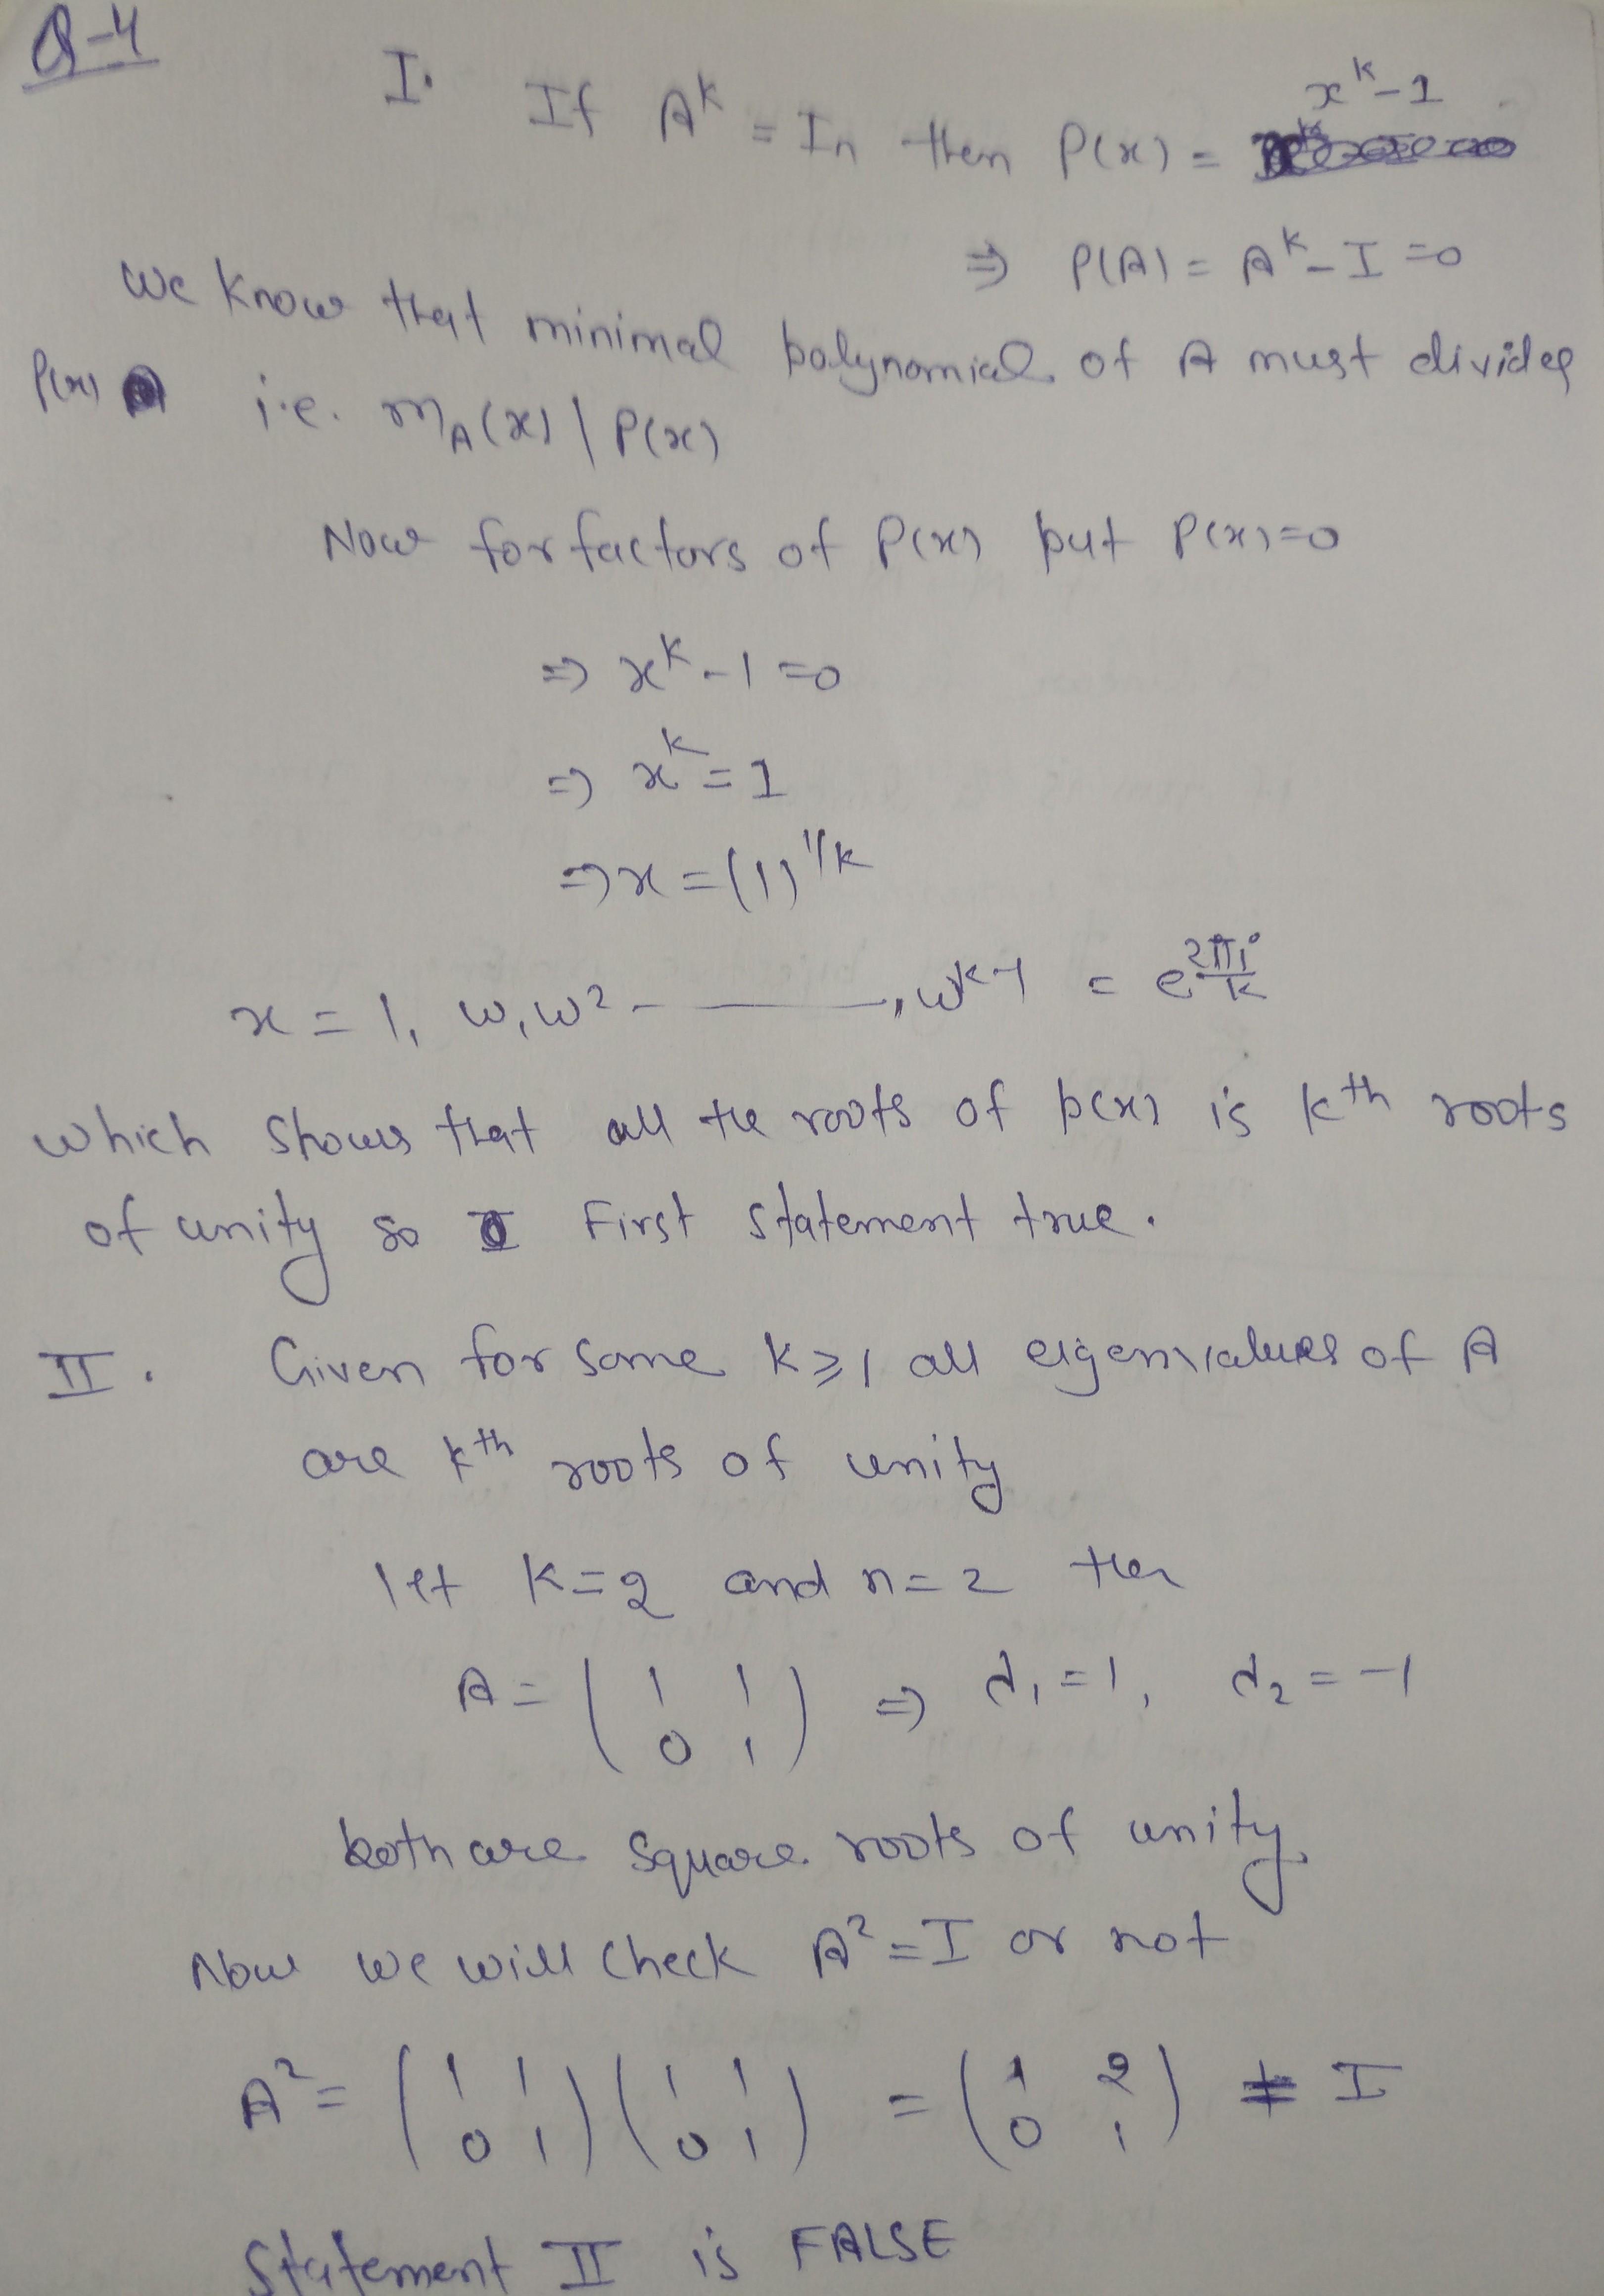 Q-4
I. If A^k = In then P(x) = x^k-1
⇒ P(A) = A^k - I = 0
We know that minimal polynomial of A must divides
P(x) i.e. m_A(x) | P(x)
Now for factors of P(x) put P(x)=0
⇒ x^k - 1 = 0
⇒ x^k = 1
⇒ x = (1)^1/k
x = 1, ω, ω^2 - ———, ω^k-1 = e^2πi/k
which shows that all the roots of p(x) is kth roots
of unity so First statement true.
II. Given for some k ≥ 1 all eigenvalues of A
are kth roots of unity
let k=2 and n=2 then
A = (1 1
0 1) ⇒ λ1 = 1, λ2 = -1
both are square roots of unity.
Now we will check A^2 = I or not
A^2 = (1 1
0 1) (1 1
0 1) = (1 2
0 1) ≠ I
Statement II is FALSE